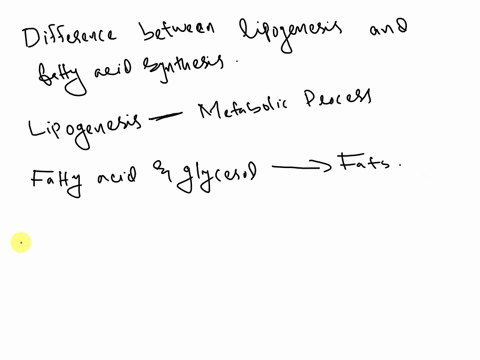 Difference between lipogenesis and
fatty acid synthesis.
Lipogenesis — Metabolic Process
Fatty acid & glycerol → Fats.